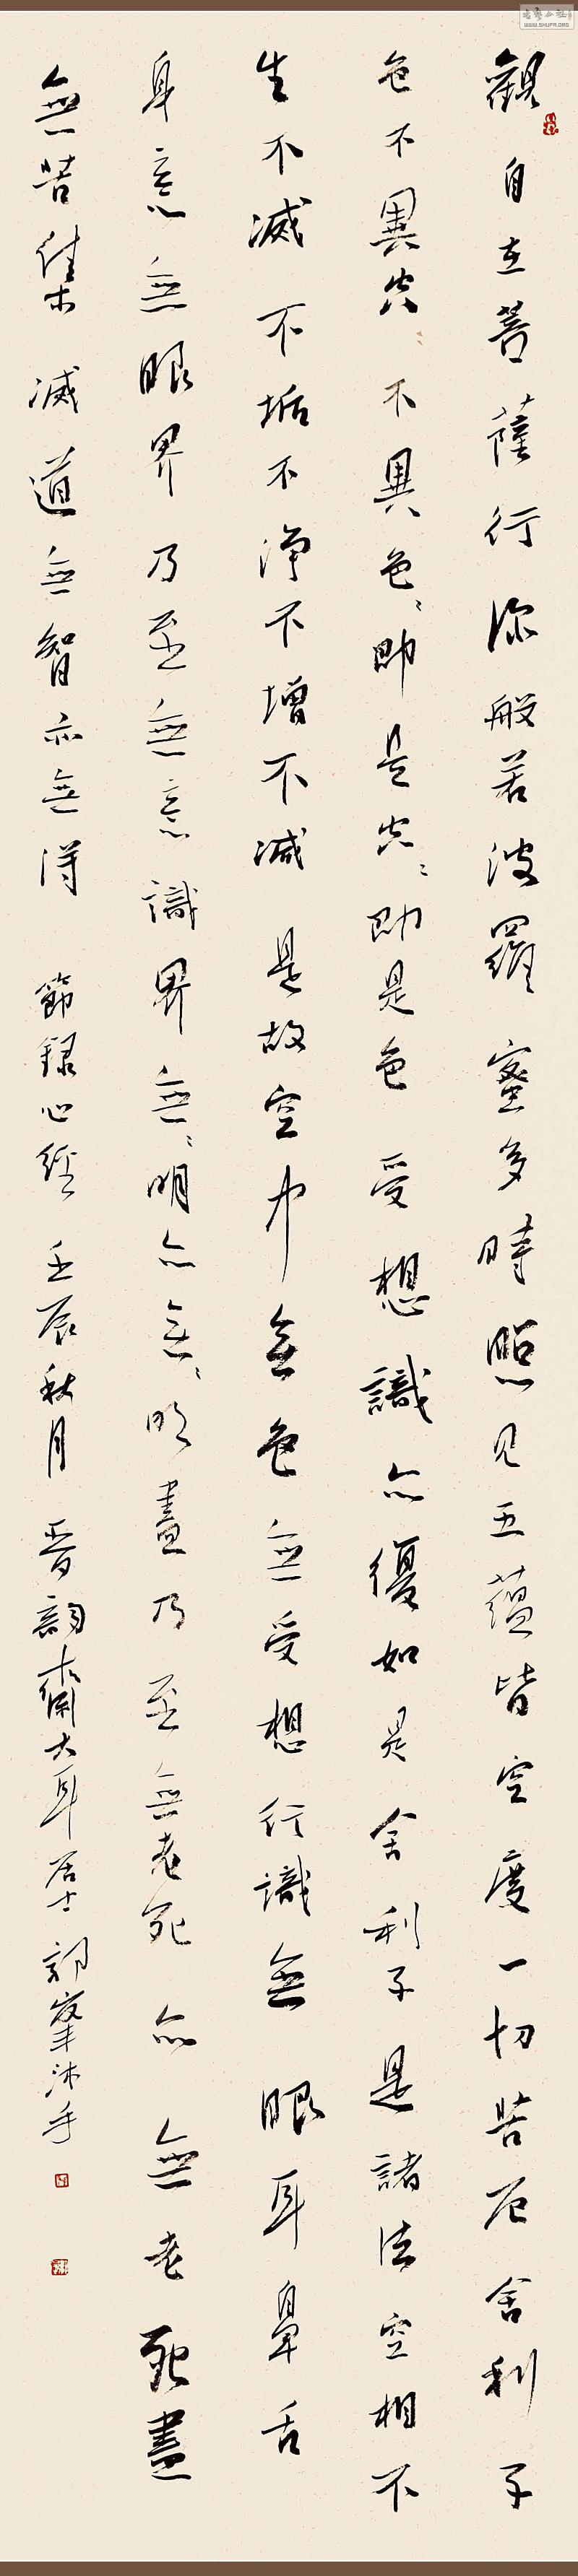 觀自在菩薩行深般若波羅蜜多時照見五蘊皆空度一切苦厄舍利子
色不異空〻不異色〻即是空〻即是色受想識亦復如是舍利子是諸法空相不
生不滅不垢不淨不增不減是故空中無色無受想行識無眼耳鼻舌
身意無眼界乃至無意識界無〻明亦無〻明盡乃至無老死亦無老死盡
無苦集滅道無智亦無得 節録心經 壬辰秋月 晉韵齋大耳居士 郭峯沐手
WWW.SHUFA.ORG